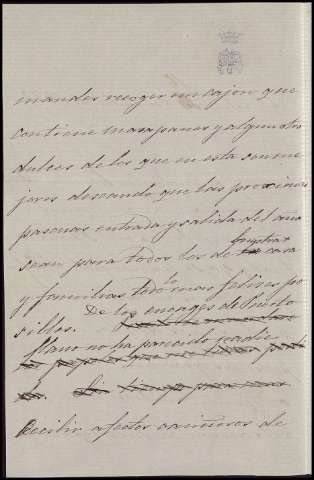 mandar recoger un cajon que
contiene mazapanes y algun otro
dulces de los que en esta son me
jores deseando que las proximas
pascuas entrada y salida del año
sean para todos los de su casa
y familias todo lo mas felices po
De los encages de Puerto
sillos.
llano no ha parecido nadie
Recibir afectos cariñosos de